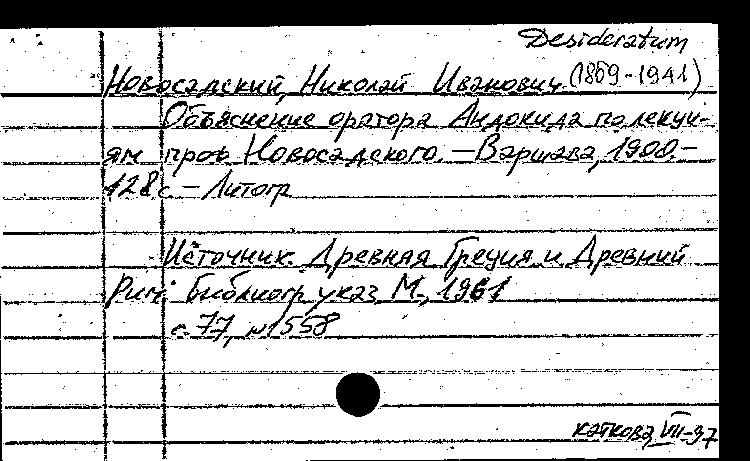 Desideratum
Новосадский, Николай Иванович (1859-1941)
Объяснение оратора Андокида по лекци-
ям проф. Новосадского. — Варшава, 1900. —
128 с. — Литогр
Источник: Древняя Греция и Древний
Рим: библиогр указ М., 1961
с. 77, №1558
Каткова, VII-97